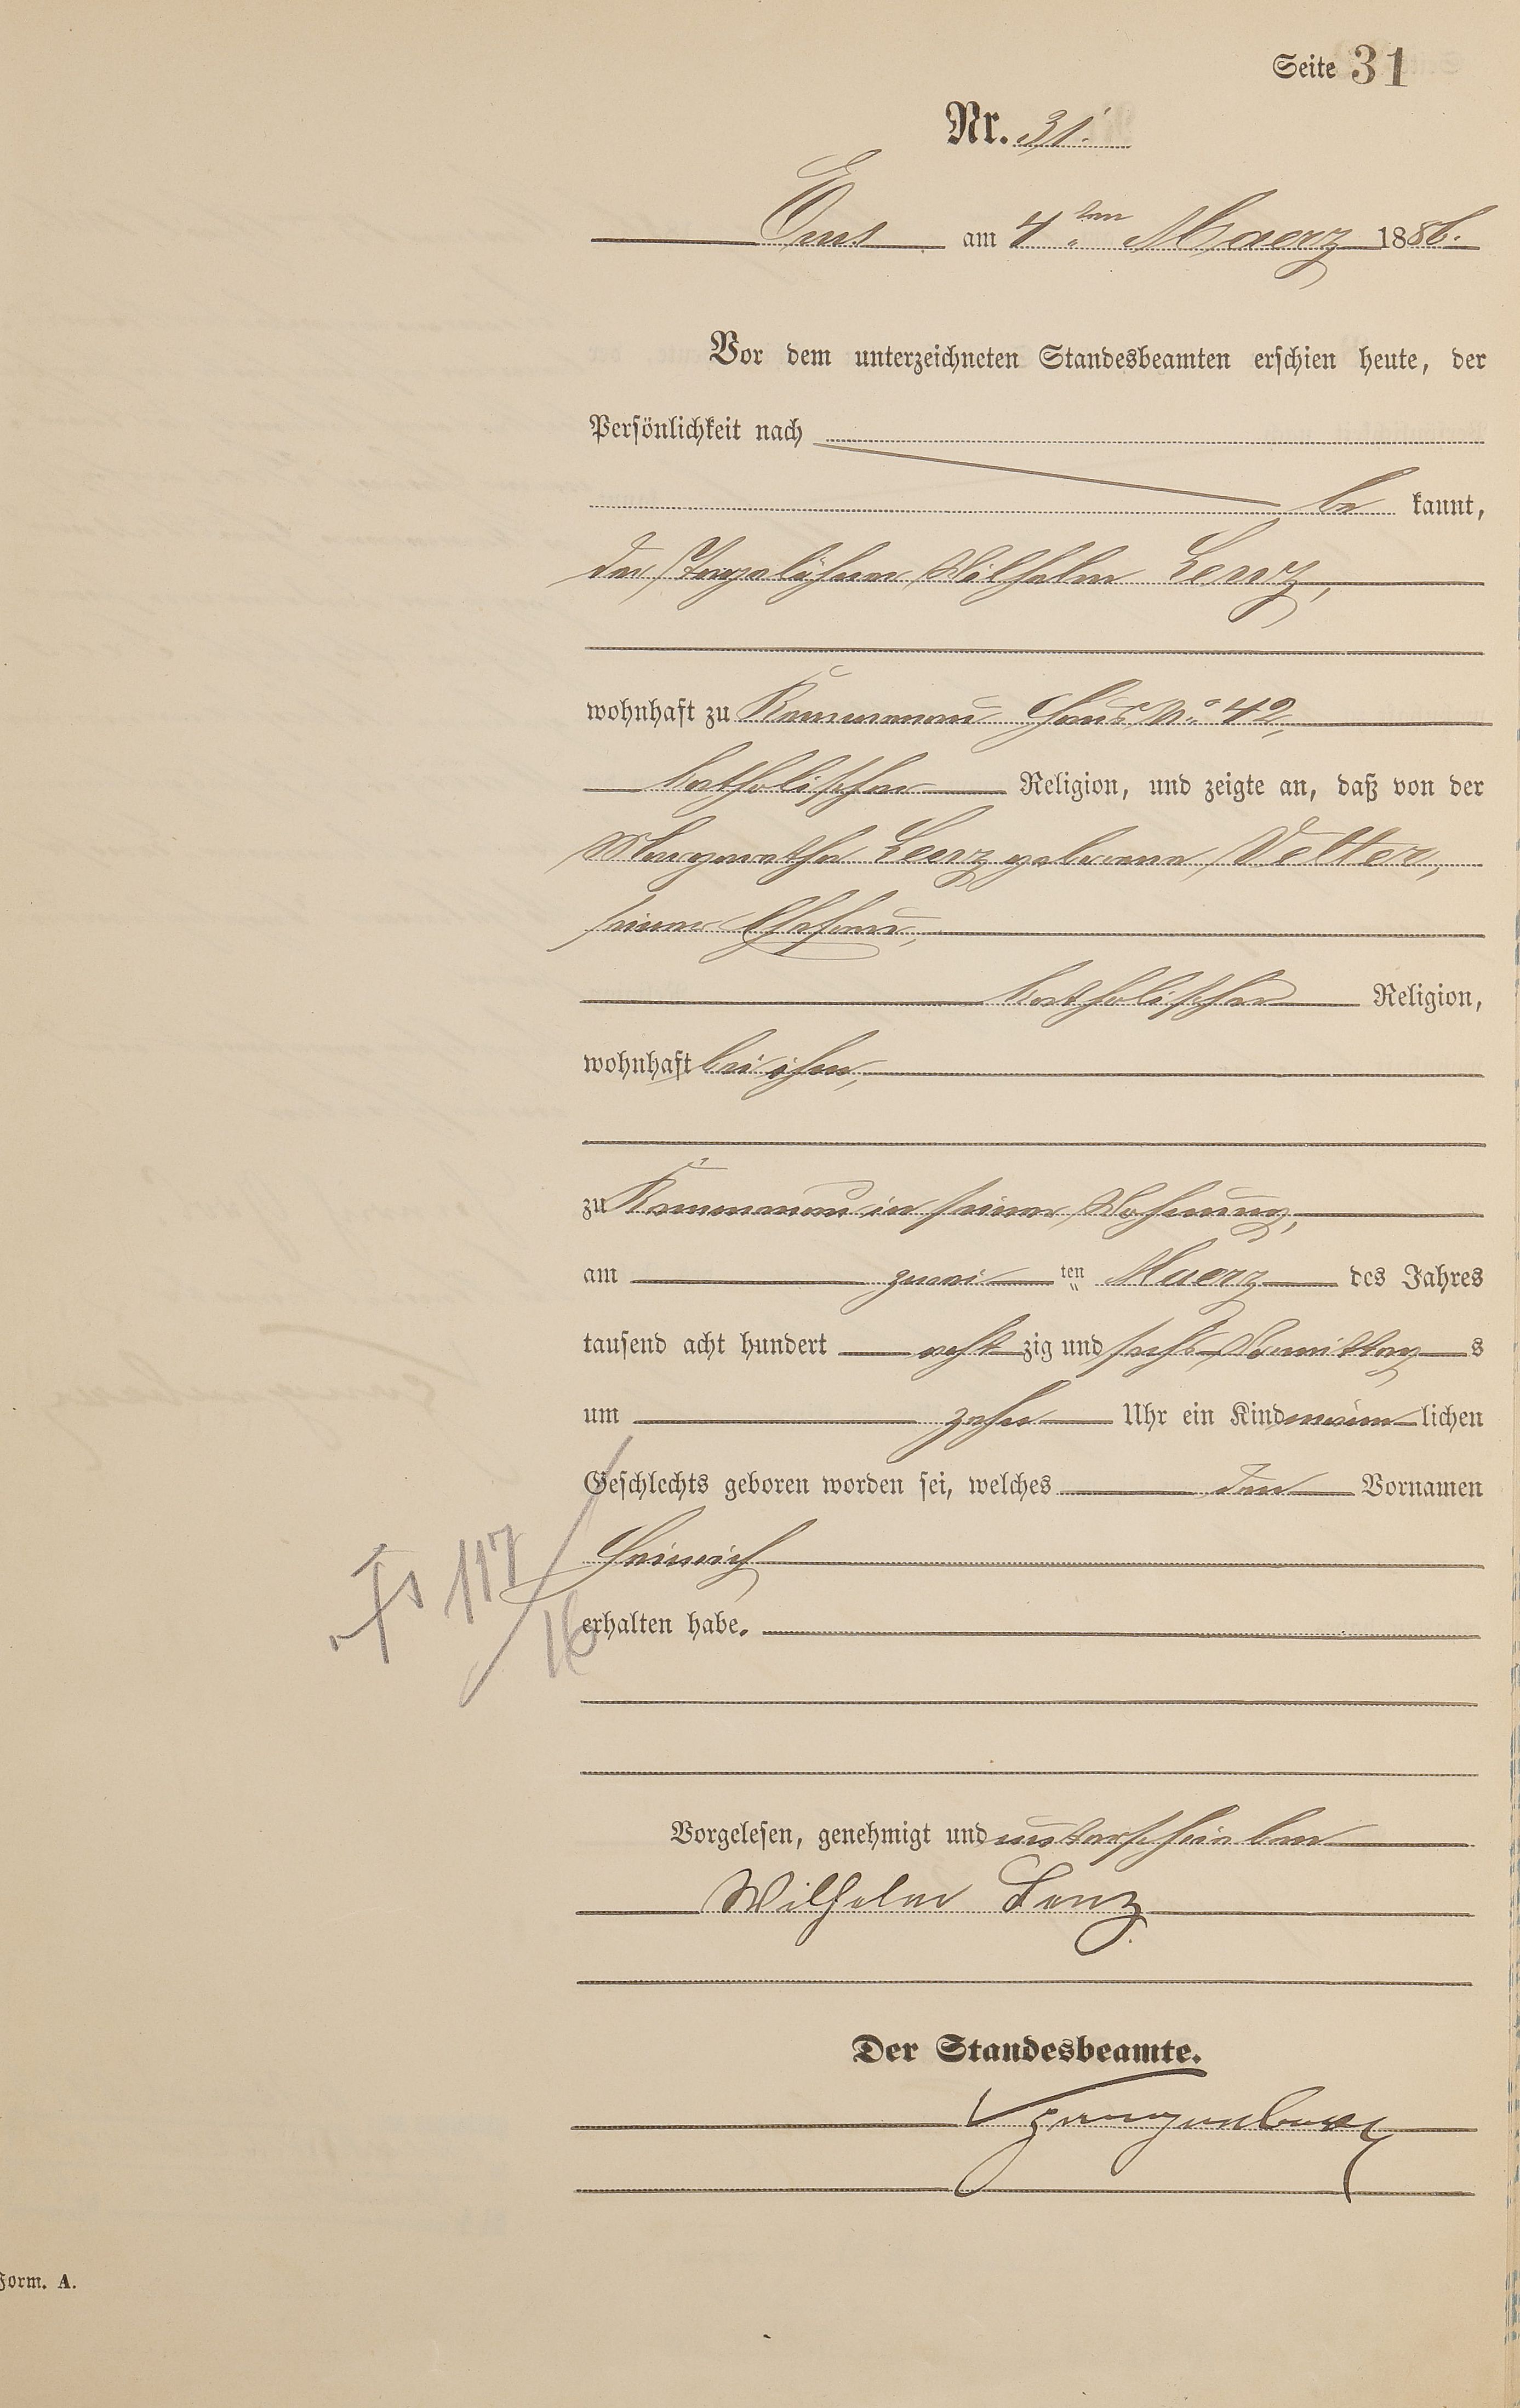 Seite 31
Nr. 31.
Ems am 4ten Maerz 1886.
Vor dem unterzeichneten Standesbeamten erschien heute, der
Persönlichkeit nach
be kannt,
der Tagelöhner Wilhelm Lenz,
wohnhaft zu Kemmenau Haus No 42,
katholischer Religion, und zeigte an, daß von der
Margaretha Lenz geborene Vetter,
seiner Ehefrau,
katholischer Religion,
wohnhaft bei ihm,
zu Kemmenau in seiner Wohnung,
am zwei ten Maerz des Jahres
tausend acht hundert acht zig und sechs Vormittag s
um zehn Uhr ein Kind männ lichen
Geschlechts geboren worden sei, welches den Vornamen
Heinrich
117
16
erhalten habe.
Vorgelesen, genehmigt und unterschrieben
Wilhelm Lenz
Der Standesbeamte.
Form. A.